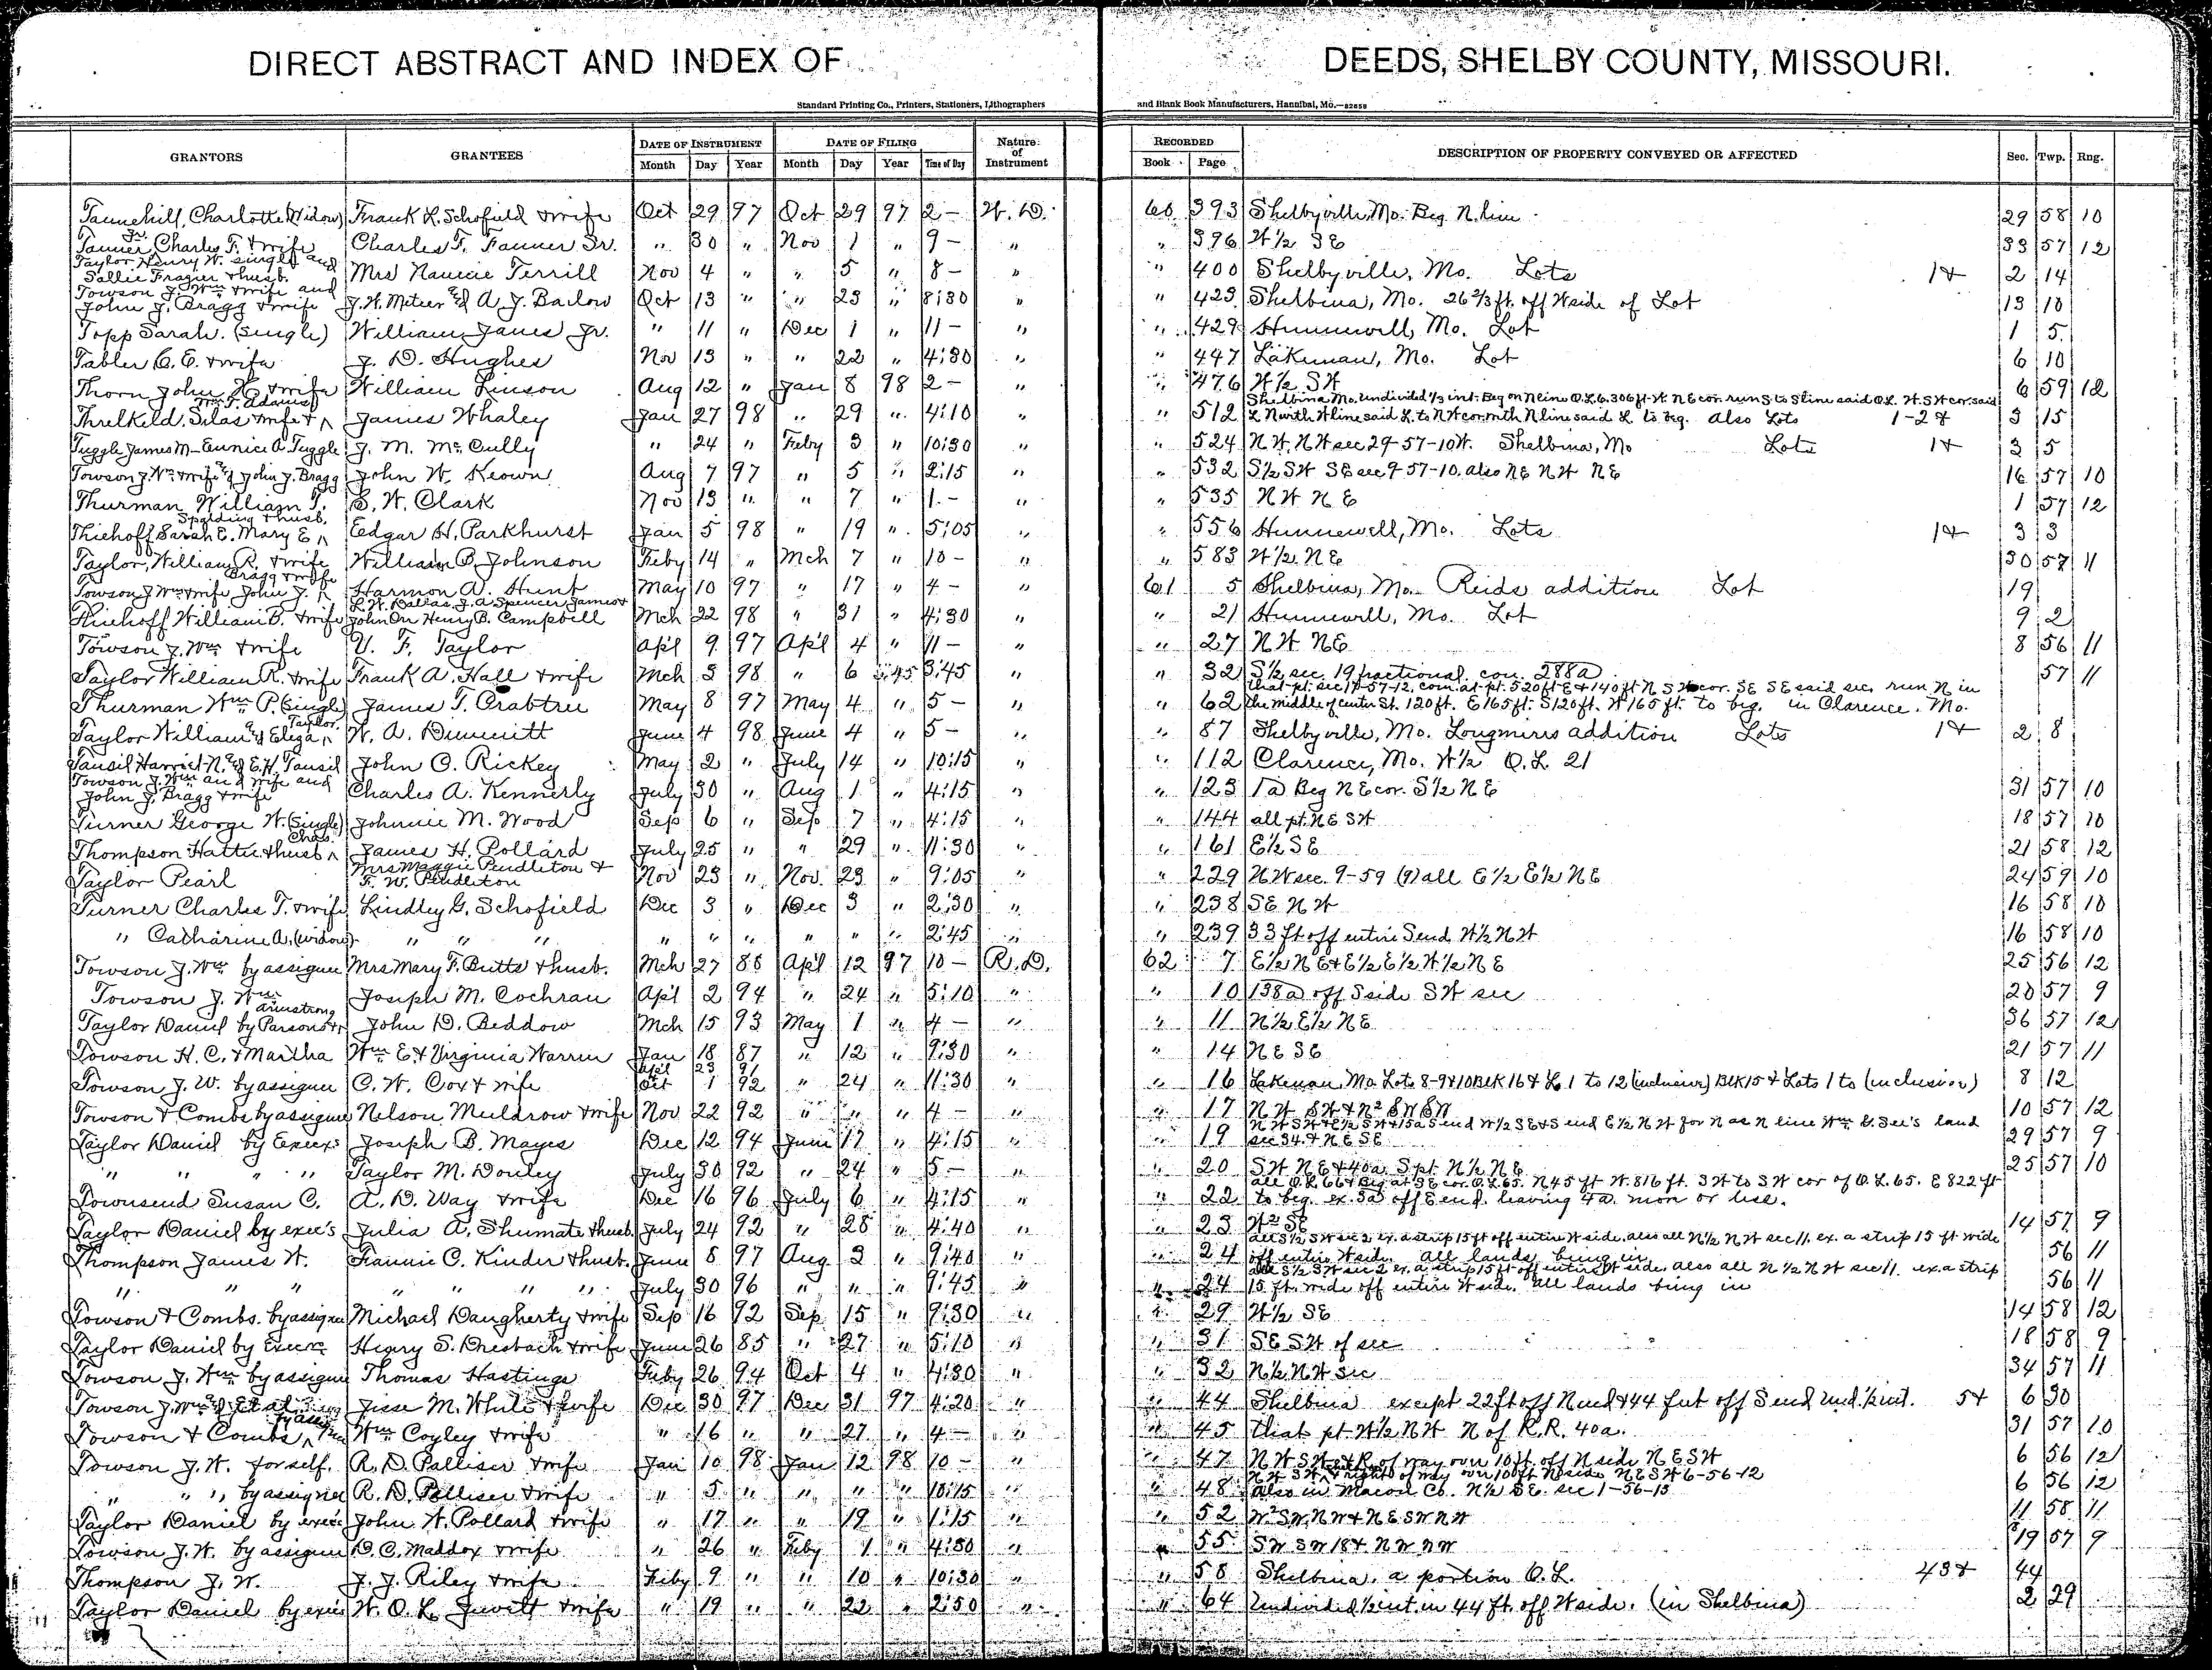 DIRECT ABSTRACT AND INDEX OF DEEDS, SHELBY COUNTY, MISSOURI.
Standard Printing Co., Printers, Stationers, Lithographers and Blank Book Manufacturers, Hannibal, Mo.—82658
GRANTORS GRANTEES DATE OF INSTRUMENT DATE OF FILING Nature of Instrument RECORDED DESCRIPTION OF PROPERTY CONVEYED OR AFFECTED Sec. Twp. Rng.
Month Day Year Month Day Year Time of Day Book Page
Tannehill, Charlotte (Widow) Frank L. Schofield & wife Oct 29 97 Oct 29 97 2 — W. D. 60 393 Shelbyville, Mo. Beg N. line 29 58 10
Tanner, Charles F. Jr. & wife Charles F. Tanner Sr. " 30 " Nov 1 " 9 — " " 396 W½ SE 33 57 12
Taylor Henry W. single and Sallie Frazier & husb. Mrs Nannie Terrill Nov 4 " " 5 " 8 — " " 400 Shelbyville, Mo. Lots 1 & 2 14
Towson J. Wm & wife and John J. Bragg & wife J. W. Meteer & A. J. Barlow Oct 13 " " 23 " 8:30 " " 423 Shelbina, Mo. 26⅔ ft. off W side of Lot 13 10
Topp Sarah. (single) William Janes Jr. " 11 " Dec 1 " 11 — " " 429 Hunnewell, Mo. Lot 1 5
Tabler C. E. & wife J. D. Hughes Nov 13 " " 22 " 4:30 " " 447 Lakenan, Mo. Lot 6 10
Thorn John W. & wife William Linson Aug 12 " Jan 8 98 2 — " " 476 W½ SW 6 59 12
Threlkeld, Silas & wife & Wm F. Adams James Whaley Jan 27 98 " 29 " 4:10 " " 512 Shelbina Mo. Undivided ⅓ int. Beg on N line O.L. 6. 306 ft. W NE cor. run S to S line said O.L. W. SW cor. said
L North W line said L. to NW cor. with N line said L. to beg. Also Lots 1-2 & 3 15
Tuggle James M — Eunice A. Tuggle J. M. McCully " 24 " Feby 3 " 10:30 " " 524 NW, NW sec 29-57-10W. Shelbina, Mo Lots 1 & 3 5
Towson J. Wm & wife & John J. Bragg John W. Keown Aug 7 97 " 5 " 2:15 " " 532 S½ SW SE sec 9 57-10. also NE NW NE 16 57 10
Thurman William T. S. W. Clark Nov 13 " " 7 " 1 — " " 535 NW NE 1 57 12
Thiehoff Sarah E. Mary E. Spalding & husb. Edgar H. Parkhurst Jan 5 98 " 19 " 5:05 " " 556 Hunnewell, Mo. Lots 1 & 3 3
Taylor, William R. & wife William B. Johnson Feby 14 " Mch 7 " 10 — " " 583 W½ NE 30 58 11
Towson J Wm & wife John J. Bragg & wife Harmon A. Hunt May 10 97 " 17 " 4 — " 61 5 Shelbina, Mo. Reids addition Lot 19
Thiehoff William B. & wife L. W. Dallas, J. A. Spencer James & John Orr Henry B. Campbell Mch 22 98 " 31 " 4:30 " " 21 Hunnewell, Mo. Lot 9 2
Towson J. Wm & wife V. F. Taylor Apl 9 97 Apl 4 " 11 — " " 27 NW NE 8 56 11
Taylor William R. & wife Frank A. Hall & wife Mch 3 98 " 6 3:45 3:45 " " 32 S½ sec. 19 fractional con. 288a 57 11
Thurman Wm P. (single) James T. Crabtree May 8 97 May 4 " 5 — " " 62 That pt. sec 17-57-12, com. at pt. 520 ft E & 140 ft N SW cor. SE SE said sec. run N in
the middle of center St. 120 ft. E 165 ft. S 120 ft. W 165 ft. to beg. in Clarence, Mo.
Taylor William & Eliza Taylor W. A. Dimmitt June 4 98 June 4 " 5 — " " 87 Shelbyville, Mo. Longmires addition Lots 1 & 2 8
Tansil Harriet N. & E. H. Tansil John C. Rickey May 2 " July 14 " 10:15 " " 112 Clarence, Mo. W½ O. L. 21
Towson J. Wm and wife and John J. Bragg & wife Charles A. Kennerly July 30 " Aug 1 " 4:15 " " 123 1a Beg NE cor. S½ NE 31 57 10
Turner George W. (single) Johnnie M. Wood Sep 6 " Sep 7 " 4:15 " " 144 all pt. NE SW 18 57 10
Thompson Hattie & husb Chas. James H. Pollard July 25 " " 29 " 11:30 " " 161 E½ SE 21 58 12
Taylor Pearl Mrs Maggie Pendleton & F. W. Pendleton Nov 23 " Nov. 23 " 9:05 " " 229 NW sec. 9-59 (9) all E½ E½ NE 24 59 10
Turner Charles T. & wife Lindley G. Schofield Dec 3 " Dec 3 " 2:30 " " 238 SE NW 16 58 10
" Catharine A. (widow) " " " " " " " " " 2:45 " " 239 33 ft off entire S end W½ NW 16 58 10
Towson J. Wm by assignee Mrs Mary F. Butts & husb. Mch 27 88 Apl 12 97 10 — R. D. 62 7 E½ NE & E½ E½ W½ NE 25 56 12
Towson J. Wm Joseph M. Cochran Apl 2 94 " 24 " 5:10 " " 10 138a off S side SW sec 20 57 9
Taylor Daniel by Parsons & Armstrong John D. Beddow Mch 15 93 May 1 " 4 — " " 11 N½ E½ NE 36 57 12
Towson H. C. & Martha Wm E. & Virginia Warren Jan 18 87 " 12 " 9:30 " " 14 NE SE 21 57 11
Towson J. W. by assignee C. W. Cox & wife Apl 23 91 Oct 1 92 " 24 " 11:30 " " 16 Lakenan, Mo. Lots 8-9 & 10 BLK 16 & L. 1 to 12 (inclusive) BLK 15 & Lots 1 to (inclusive) 8 12
Towson & Combs by assignee Nelson Muldrow & wife Nov 22 92 " " " 4 — " " 17 NW SW & N² SW SW 10 57 12
Taylor Daniel by Execrs Joseph B. Mayes Dec 12 94 June 17 " 4:15 " " 19 NW SW & E½ SW & 15a S end W½ SE & S end E½ NW for N as N line Wm B. See's land
sec 34. & NE SE 29 57 9
" " " " Taylor M. Donley July 30 92 " 24 " 5 — " " 20 SW NE & 40a S pt. N½ NE 25 57 10
Townsend Susan C. A. D. Way & wife Dec 16 96 July 6 " 4:15 " " 22 all O.L. 66 & Beg at SE cor. O.L. 65. N 45 ft W. 816 ft. SW to SW cor of O.L. 65. E 822 ft
to beg. ex. 3a off E end. leaving 4a. more or less.
Taylor Daniel by exec's Julia A. Shumate & husb. July 24 92 " 28 " 4:40 " " 23 W² SE 14 57 9
Thompson James W. Fannie C. Kinder & husb. June 8 97 Aug 3 " 9:40 " " 24 all S½ SW sec 2 ex. a strip 15 ft off entire W side, also all N½ NW sec 11. ex. a strip 15 ft wide
off entire W side. All lands being in 56 11
" " " " " " " July 30 96 " " " 9:45 " " 24 all S½ SW sec 2 ex. a strip 15 ft off entire W side, also all N½ NW sec 11. ex. a strip
15 ft. wide off entire W side. all lands being in 56 11
Towson & Combs. by assignee Michael Daugherty & wife Sep 16 92 Sep 15 " 9:30 " " 29 W½ SE 14 58 12
Taylor Daniel by Execrs Henry S. Dresbach & wife June 26 85 " 27 " 5:10 " " 31 SE SW of sec 18 58 9
Towson J. Wm by assignee Thomas Hastings Feby 26 94 Oct 4 " 4:30 " " 32 N½ NW sec 34 57 11
Towson J. Wm & et al Jesse M. White & wife Dec 30 97 Dec 31 97 4:20 " " 44 Shelbina except 22 ft off N end & 44 feet off S end und. ½ int. 5 & 6 30
Towson & Combs by assignee Wm Coyley & wife " 16 " " 27 " 4 — " " 45 that pt. W½ NW N of R.R. 40a. 31 57 10
Towson J. W. for self. R. D. Palliser & wife Jan 10 98 Jan 12 98 10 — " " 47 NW SW & R of way over 10 ft. off N side NE SW 6 56 12
" " " by assignee R. D. Palliser & wife " 5 " " " " 10:15 " " 48 NW SW & right of way over 10 ft N side NE SW 6-56-12
also in Macon Co. N½ SE. sec 1-56-13 6 56 12
Taylor Daniel by execs John W. Pollard & wife " 17 " " 19 " 1:15 " " 52 W² SW, NW & NE SW NW 11 58 11
Towson J. W. by assignee D. C. Maddox & wife " 26 " Feby 1 " 4:30 " " 55 SW SW 18 & NW NW 19 57 9
Thompson J. W. J. J. Riley & wife Feby 9 " " 10 " 10:30 " " 58 Shelbina, a portion O. L. 43 & 44
Taylor Daniel by execs W. O. L. Jewett & wife " 19 " " 22 " 2:50 " " 64 Undivided ½ int. in 44 ft. off W side. (in Shelbina) 2 29